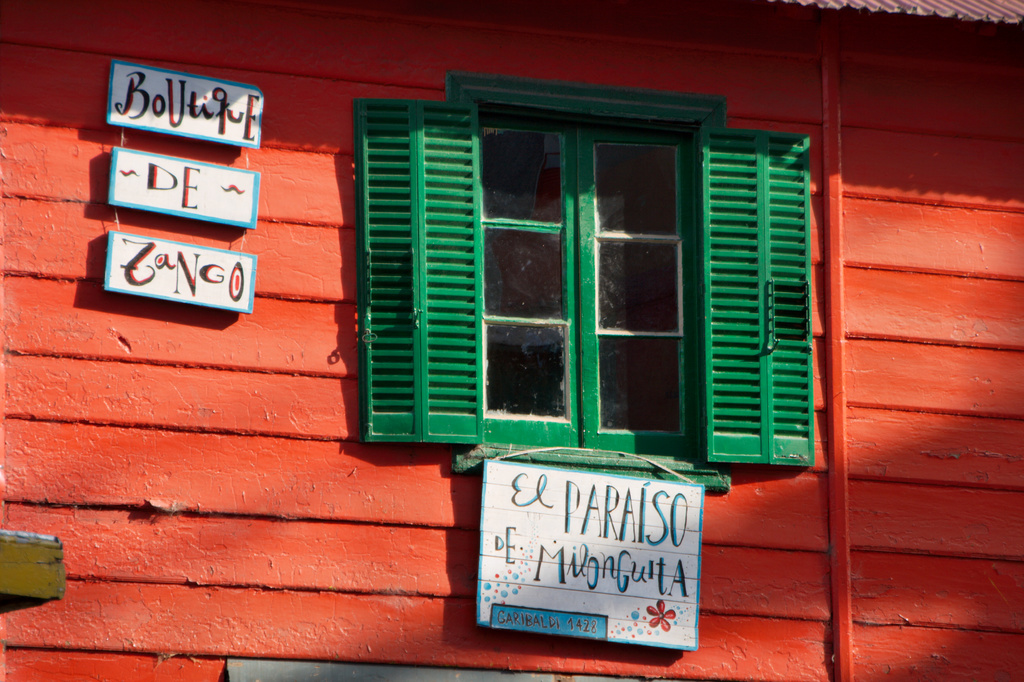 BoUtiqUE
DE
ZaNGO
El PARAÍSO
DE MilonGuitA
GARIBALDI 1428